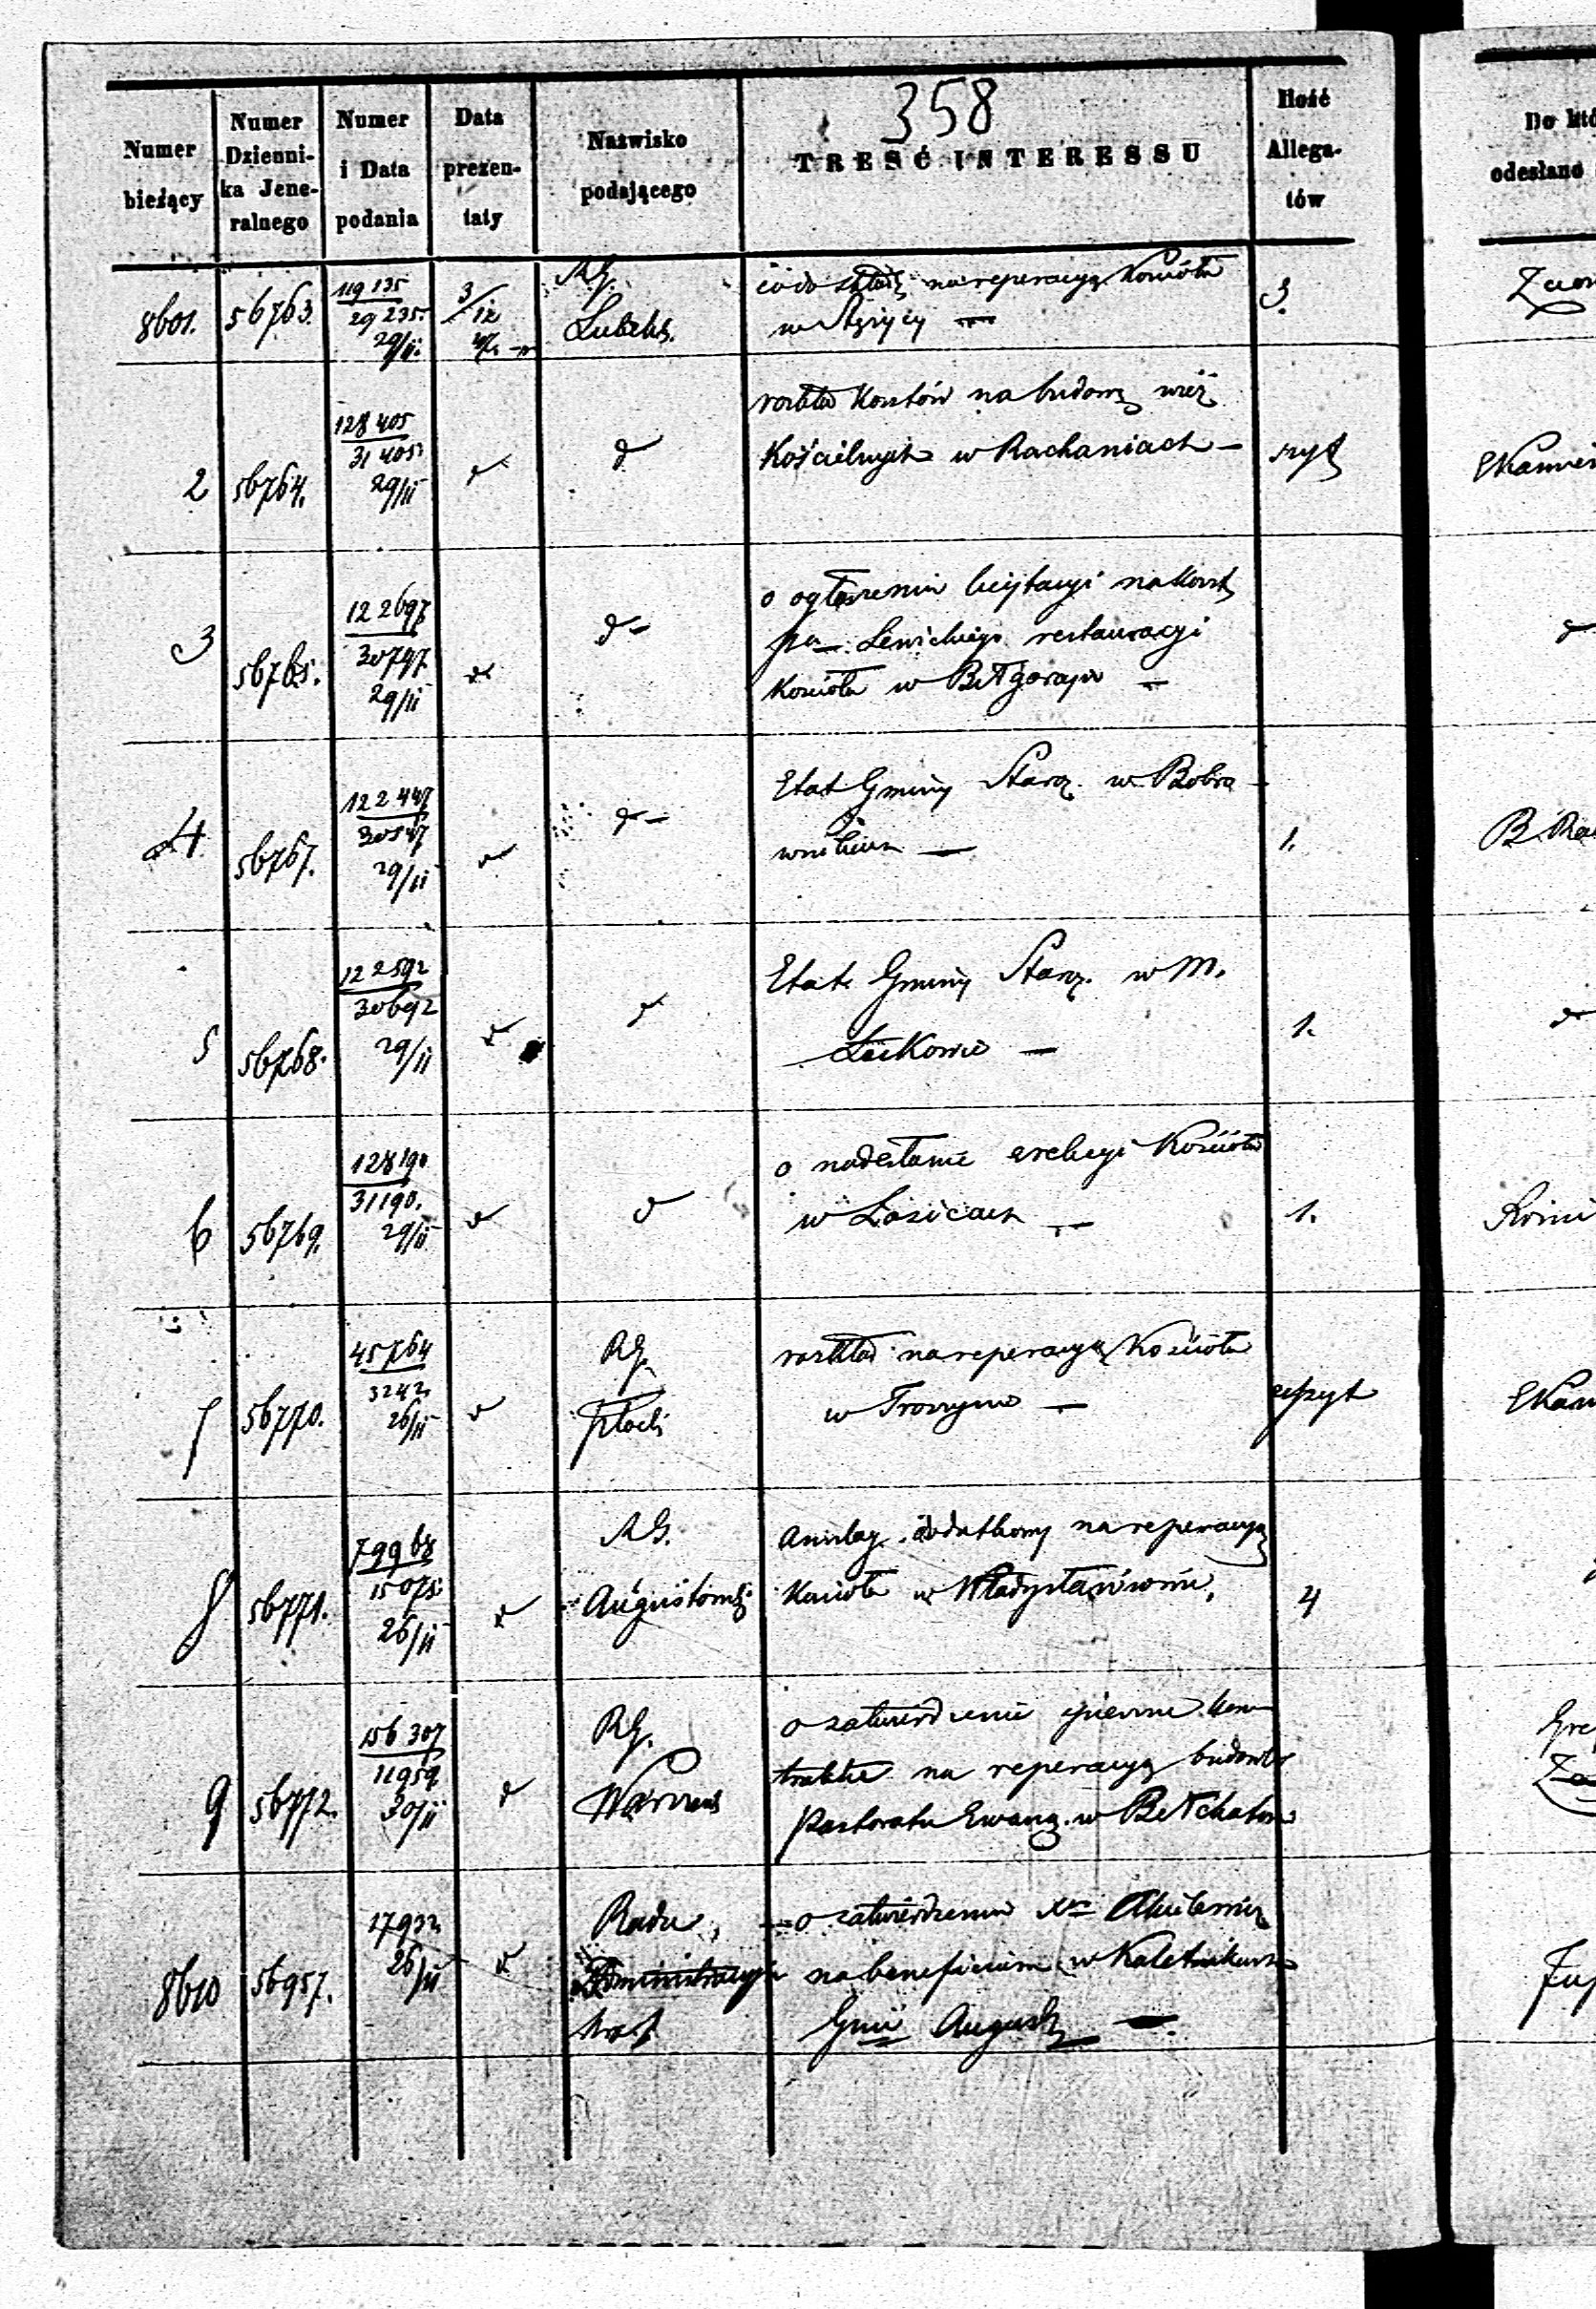 358
Numer bieżący
Numer Dzienni- ka Jene- ralnego
Numer i Data podania
Data prezen- taty
Nazwisko podającego
TREŚĆ INTERESSU
Ilość Allega- tów
Do któ
odesłano
8601. 56763. 119135 29235. 29/11. 3/12 RG. Lubels. co do składk na reperacyą Kościoła 3.
w Stężycy —
2 56764. 128405 31405 29/11 d d rozkład Kosztów na budowę wież
Kościelnych w Rachaniach — szyt
3 56765. 122697 30797 29/11 d d — o ogłoszeniu licytacyi na Koszt
pa Lewickiego restauracyi
Kościoła w Biłgoraju — d
4 56767. 122447 30547 29/11 d d — Etat Gminy Staroz. w Bobro
wnikach — 1.
5 56768. 122592 30692 29/11 d d Etat Gminy Staroz. w m.
Łukowie — 1. d
6 56769. 128190 31190. 29/11 d d o nadesłanie erekcyi Kościoła
w Łosicach — 1.
7 56770. 45764 3242 26/11 d RG. Płock rozkład na reperacyą Kościoła
w Troszynie — zeszyt
8 56771. 79968 15075. 26/11 d RG. Augustowsk. anszlag dodatkowy na reperacyą
Kościoła w Władysławowie, 4
9 56772. 156307 11959 30/11 d RG. Warszaws o zatwierdzenie kon
traktu na reperacyą budowli
Pastoratu Ewang. w Bełchatow
8610 56957. 17932 26/11 d Rada Administracyjn o zatwierdzeniu Xa
na beneficium w Kaletnikach
Gnii August —